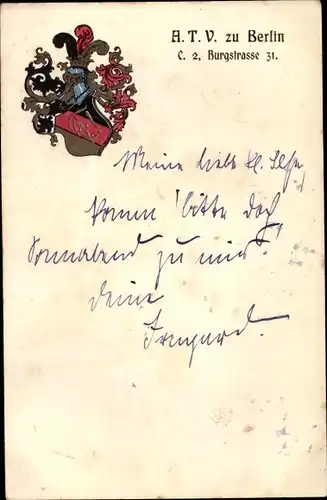 A. T. V. zu Berlin
C. 2, Burgstrasse 31.
Meine liebe kl. Ilse
komm bitte doch
Sonnabend zu mir!
Deine
Irmgard.